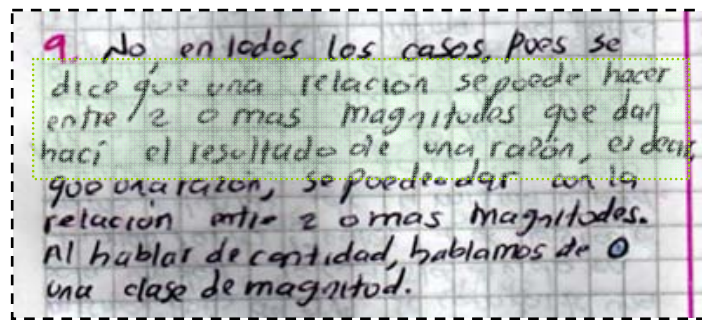 9. No en todos los casos, pues se
dice que una relación se puede hacer
entre 2 o mas magnitudes que dan
hací el resultado de una razón, es decir,
que una razón, se puede dar con la
relación entre 2 o mas magnitudes.
Al hablar de cantidad, hablamos de
una clase de magnitud.